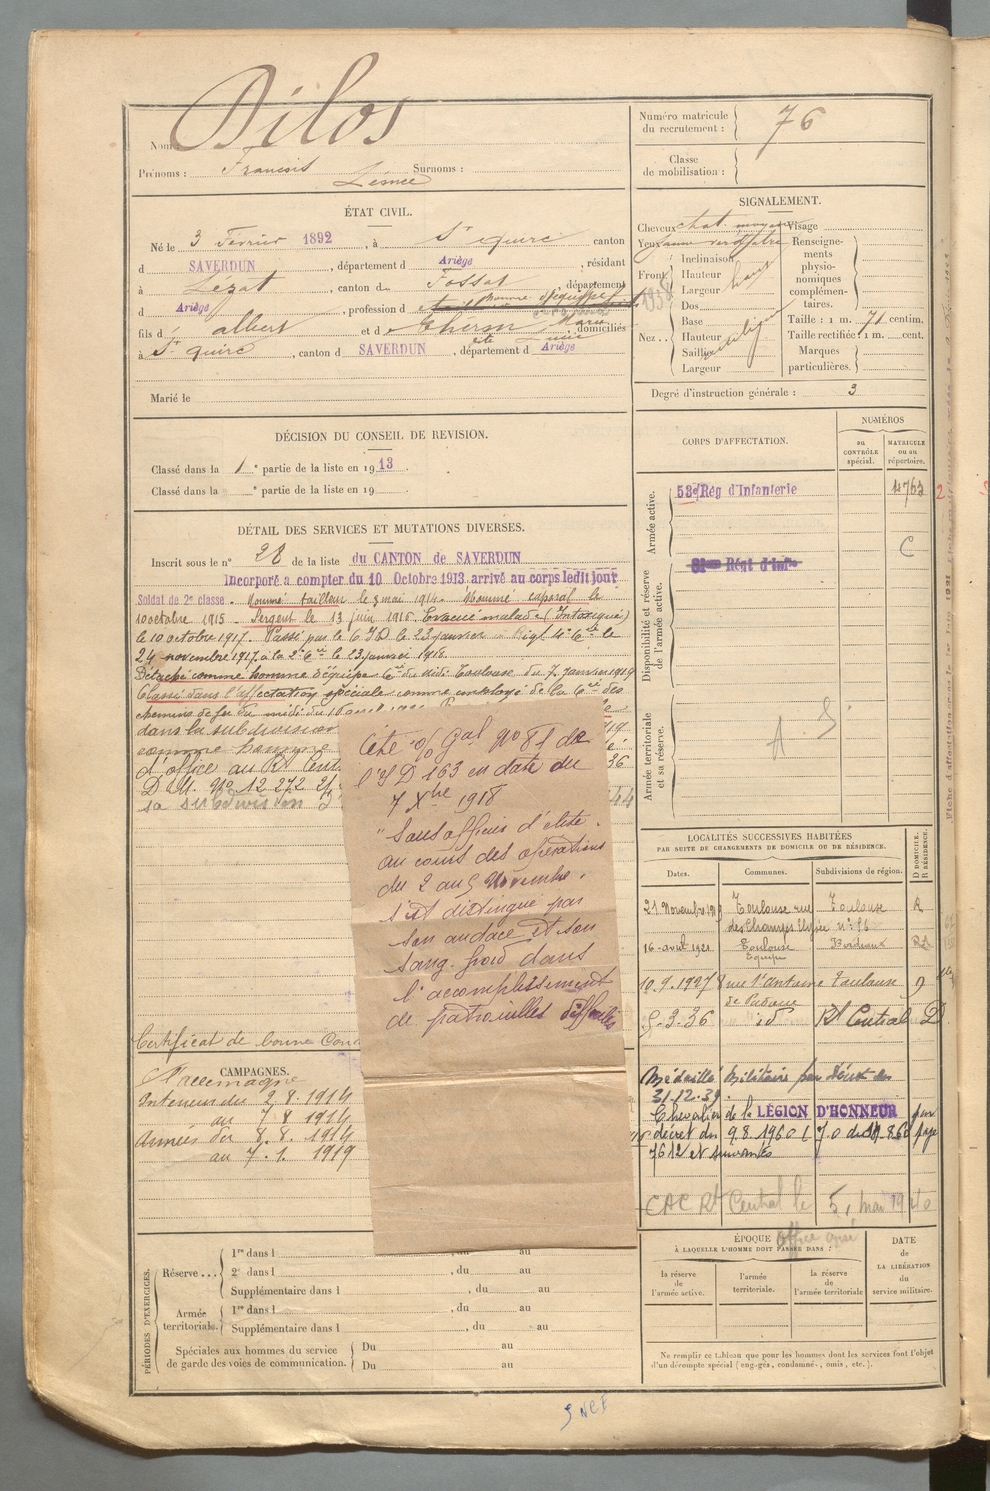 Nom Dilos
Prénoms : François Surnoms :
ÉTAT CIVIL.
Né le 3 Février 1892, à St quirc canton
d SAVERDUN, département d Ariège, résidant
à Lézat, canton d Fossat, département
d Ariège, profession d homme d'équipe
fils d albert et d Marie domiciliés
à St quirc, canton d SAVERDUN, département d Ariège
Marié le
DÉCISION DU CONSEIL DE REVISION.
Classé dans la 1e partie de la liste en 1913.
Classé dans la e partie de la liste en 19
DÉTAIL DES SERVICES ET MUTATIONS DIVERSES.
Inscrit sous le n° 28 de la liste du CANTON de SAVERDUN
Incorporé a compter du 10 Octobre 1913 arrivé au corps ledit jour
Soldat de 2e classe. Nommé tailleur le 3 mai 1914. Nommé caporal le
10 octobre 1915 - Sergent le 13 juin 1916. Evacué malade (Intoxiqué)
le 10 octobre 1917. Passé par le C.I.D. le 23 janvier
24 novembre 1917, à la 2e Cie le 23 janvier 1918.
Détaché comme homme d'équipe Cie du Midi Toulouse du 7 janvier 1919
Classé dans l'affectation spéciale comme employé de la Cie des
chemins de fer du midi du
dans la subdivision
comme homme
d'office au Rt Cent
D.M. No 12 272
sa subdivision
Cité o/o Gal No 81 de
l'ID 163 en date du
7 Xbre 1918
"Sous officier d'élite.
au cours des opérations
du 2 au 5 Novembre.
s'est distingué par
son audace et son
sang-froid dans
l'accomplissement
de patrouilles difficiles
Certificat de bonne Con
CAMPAGNES.
l'allemagne
Intérieur du 2.8.1914
au 7 8 1914
Armées du 8.8.1914
au 7.1.1919
PÉRIODES D'EXERCICES.
Réserve...
1re dans l , du au
2e dans l , du au
Supplémentaire dans l , du au
Armée territoriale.
1re dans l , du au
Supplémentaire dans l , du au
Spéciales aux hommes du service
de garde des voies de communication.
Du au
Du au
SNCF
Numéro matricule
du recrutement : 76
Classe
de mobilisation :
SIGNALEMENT.
Cheveux chat. moyen Visage
Yeux jaune verdâtre
Front
Inclinaison
Hauteur haut
Largeur
Nez..
Dos
Base
Hauteur
Saillie
Largeur
Renseigne-
ments
physio-
nomiques
complémen-
taires.
Taille : 1 m. 71 centim.
Taille rectifiée : 1 m. cent.
Marques
particulières.
Degré d'instruction générale : 3
CORPS D'AFFECTATION.
NUMÉROS
au
CONTRÔLE
spécial.
MATRICULE
ou au
répertoire.
Armée active.
53e Rég d'Infanterie 4763
C
Disponibilité et réserve
de l'armée active.
Armée territoriale
et sa réserve.
A. S.
LOCALITÉS SUCCESSIVES HABITÉES
PAR SUITE DE CHANGEMENTS DE DOMICILE OU DE RÉSIDENCE.
D DOMICILE.
R RÉSIDENCE.
Dates. Communes. Subdivisions de région.
21 Novembre 1919 Toulouse rue Toulouse R
des Champs Elysées n° 56
16 avril 1921 Toulouse Bordeaux
10.9.1927 8 rue St Antoine Toulouse D
de Padoue
5.3.36 id Rt Central D
Médaillé Militaire par Décret du
31.12.39.
Chevalier de la LÉGION D'HONNEUR par
décret du 9.8.1960 page
7612 et suivantes
CAC Rt Central le 5 mai 1940
ÉPOQUE
À LAQUELLE L'HOMME DOIT PASSER DANS :
la réserve
de l'armée active.
l'armée
territoriale.
la réserve
de l'armée territoriale
DATE
de
LA LIBÉRATION
du
service militaire.
Ne remplir ce tableau que pour les hommes dont les services font l'objet
d'un décompte spécial (engagés, condamnés, omis, etc.).